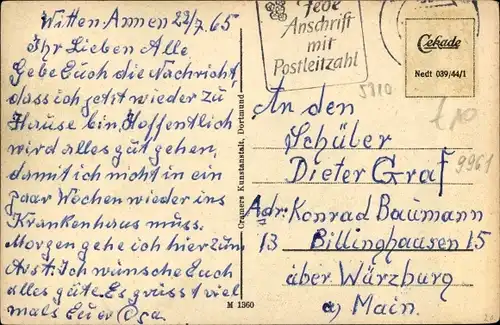 Witten-Annen 23/7.65
Ihr Lieben Alle
Gebe Euch die Nachricht,
dass ich jetzt wieder zu
Hause bin, Hoffentlich
wird alles gut gehen,
damit ich nicht in ein
paar Wochen wieder ins
Krankenhaus muss.
Morgen gehe ich hier zum
Arzt. Ich wünsche Euch
alles gute. Es grüsst viel
mals Euer Opa.
Cramers Kunstanstalt, Dortmund
M 1360
Jede
Anschrift
mit
Postleitzahl
Cekade
Nedt 039/44/1
5810
An den
Schüler
Dieter Graf
9961
Adr. Konrad Baumann
13 Billinghausen 15
über Würzburg
a) Main.